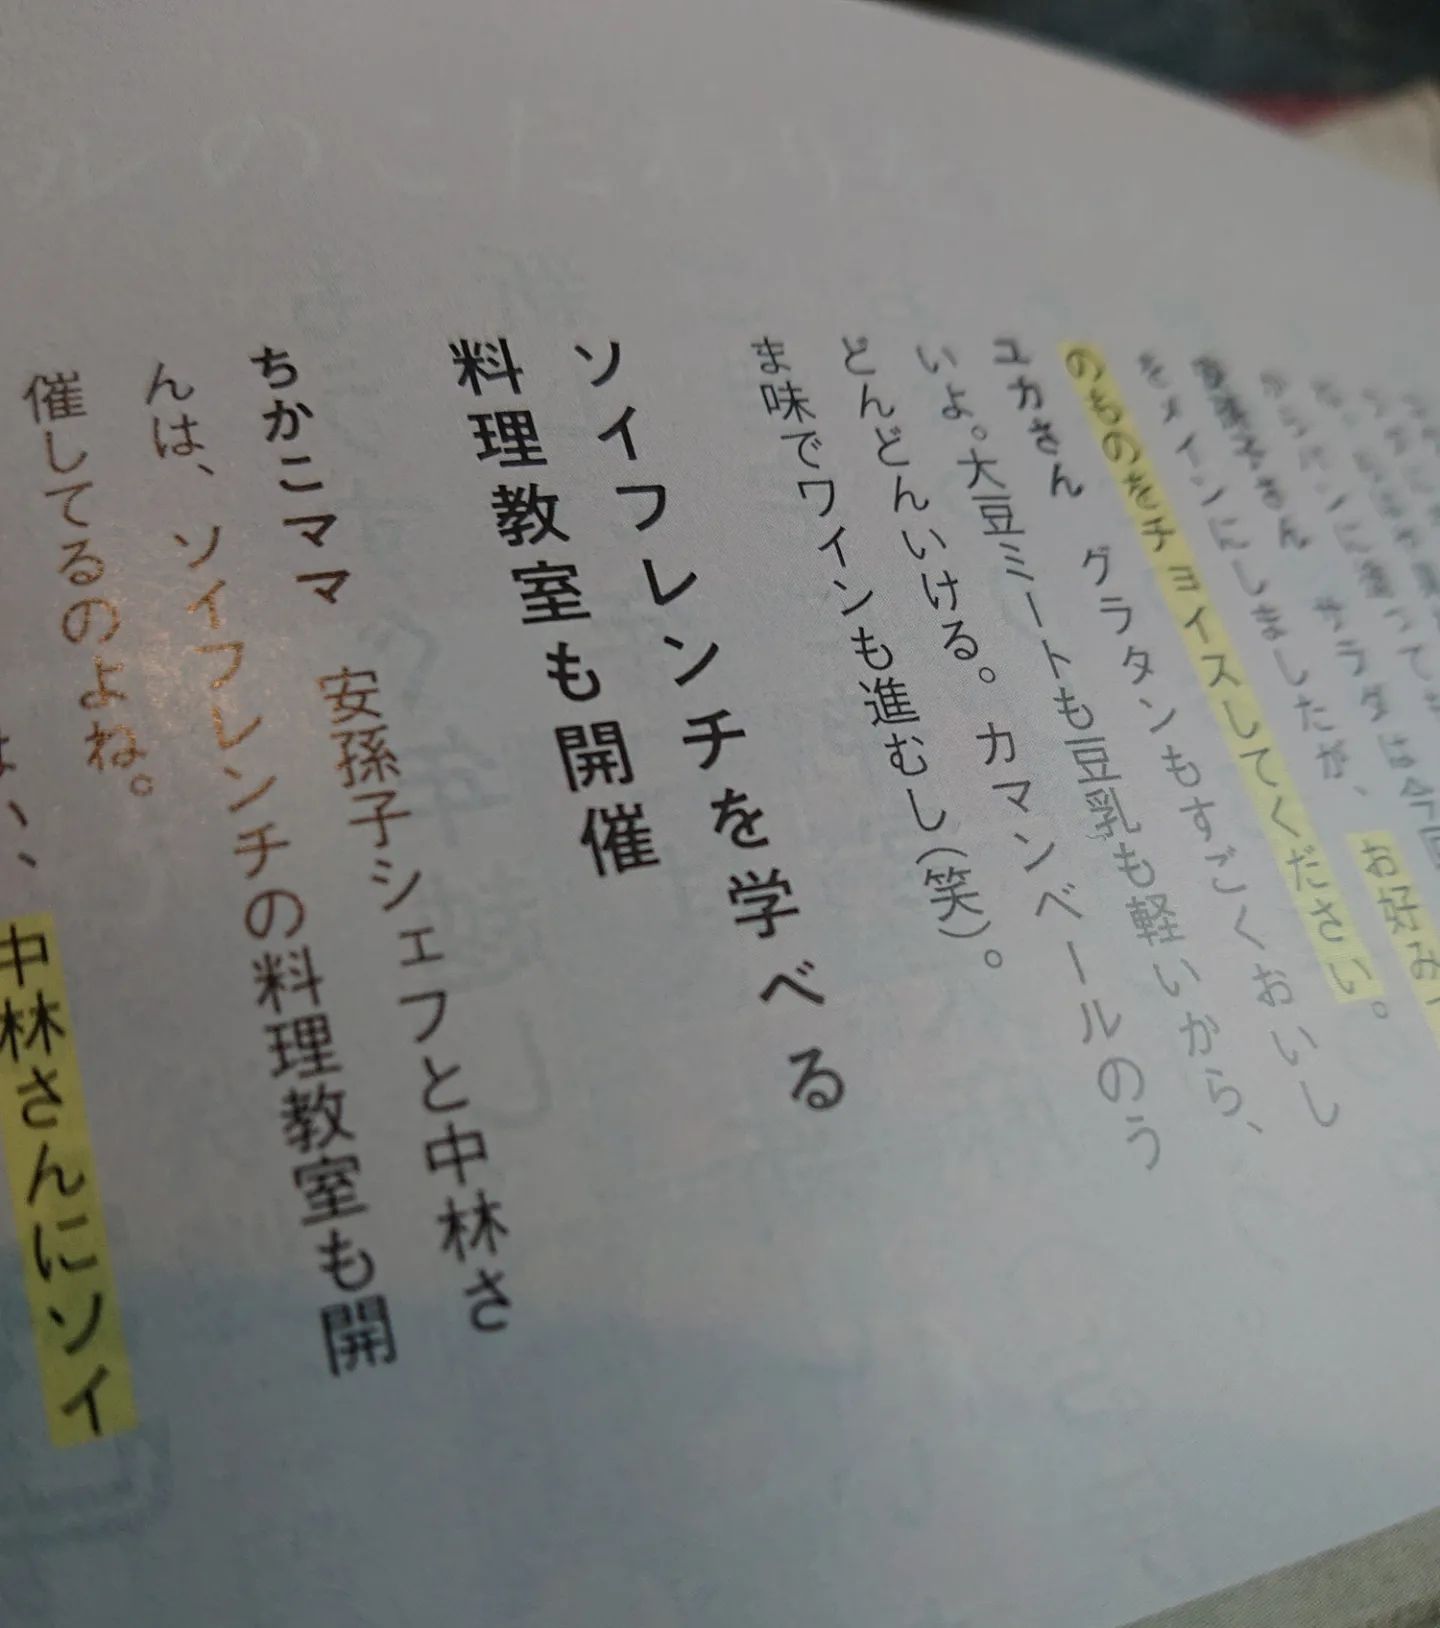 をメインにしましたが、お好み
のものをチョイスしてください。
ユカさん　グラタンもすごくおいし
いよ。大豆ミートも豆乳も軽いから、
どんどんいける。カマンベールのう
ま味でワインも進むし(笑)。
ソイフレンチを学べる
料理教室も開催
ちかこママ　安孫子シェフと中林さ
んは、ソイフレンチの料理教室も開
催してるのよね。
は、中林さんにソイ